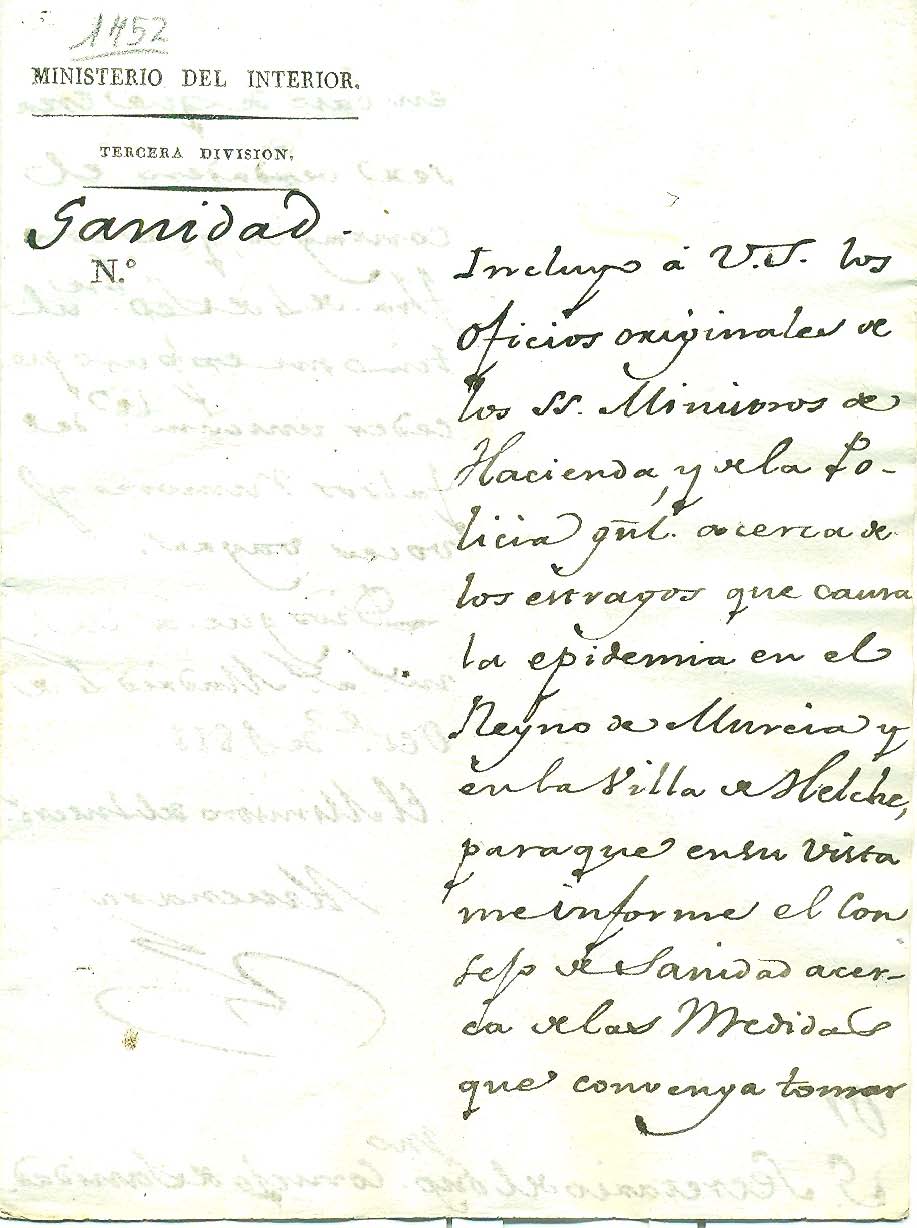 1452
MINISTERIO DEL INTERIOR.
TERCERA DIVISION,
Sanidad.
N.º
Incluyo á V.S. los
oficios originales de
los SS. Ministros de
Hacienda, y de la Po-
licia gñl. acerca de
los estragos que causa
la epidemia en el
Reyno de Murcia y
en la Villa de Helche,
para que en su vista
me informe el Con
sejo de Sanidad acer-
ca de las Medidas
que convenga tomar